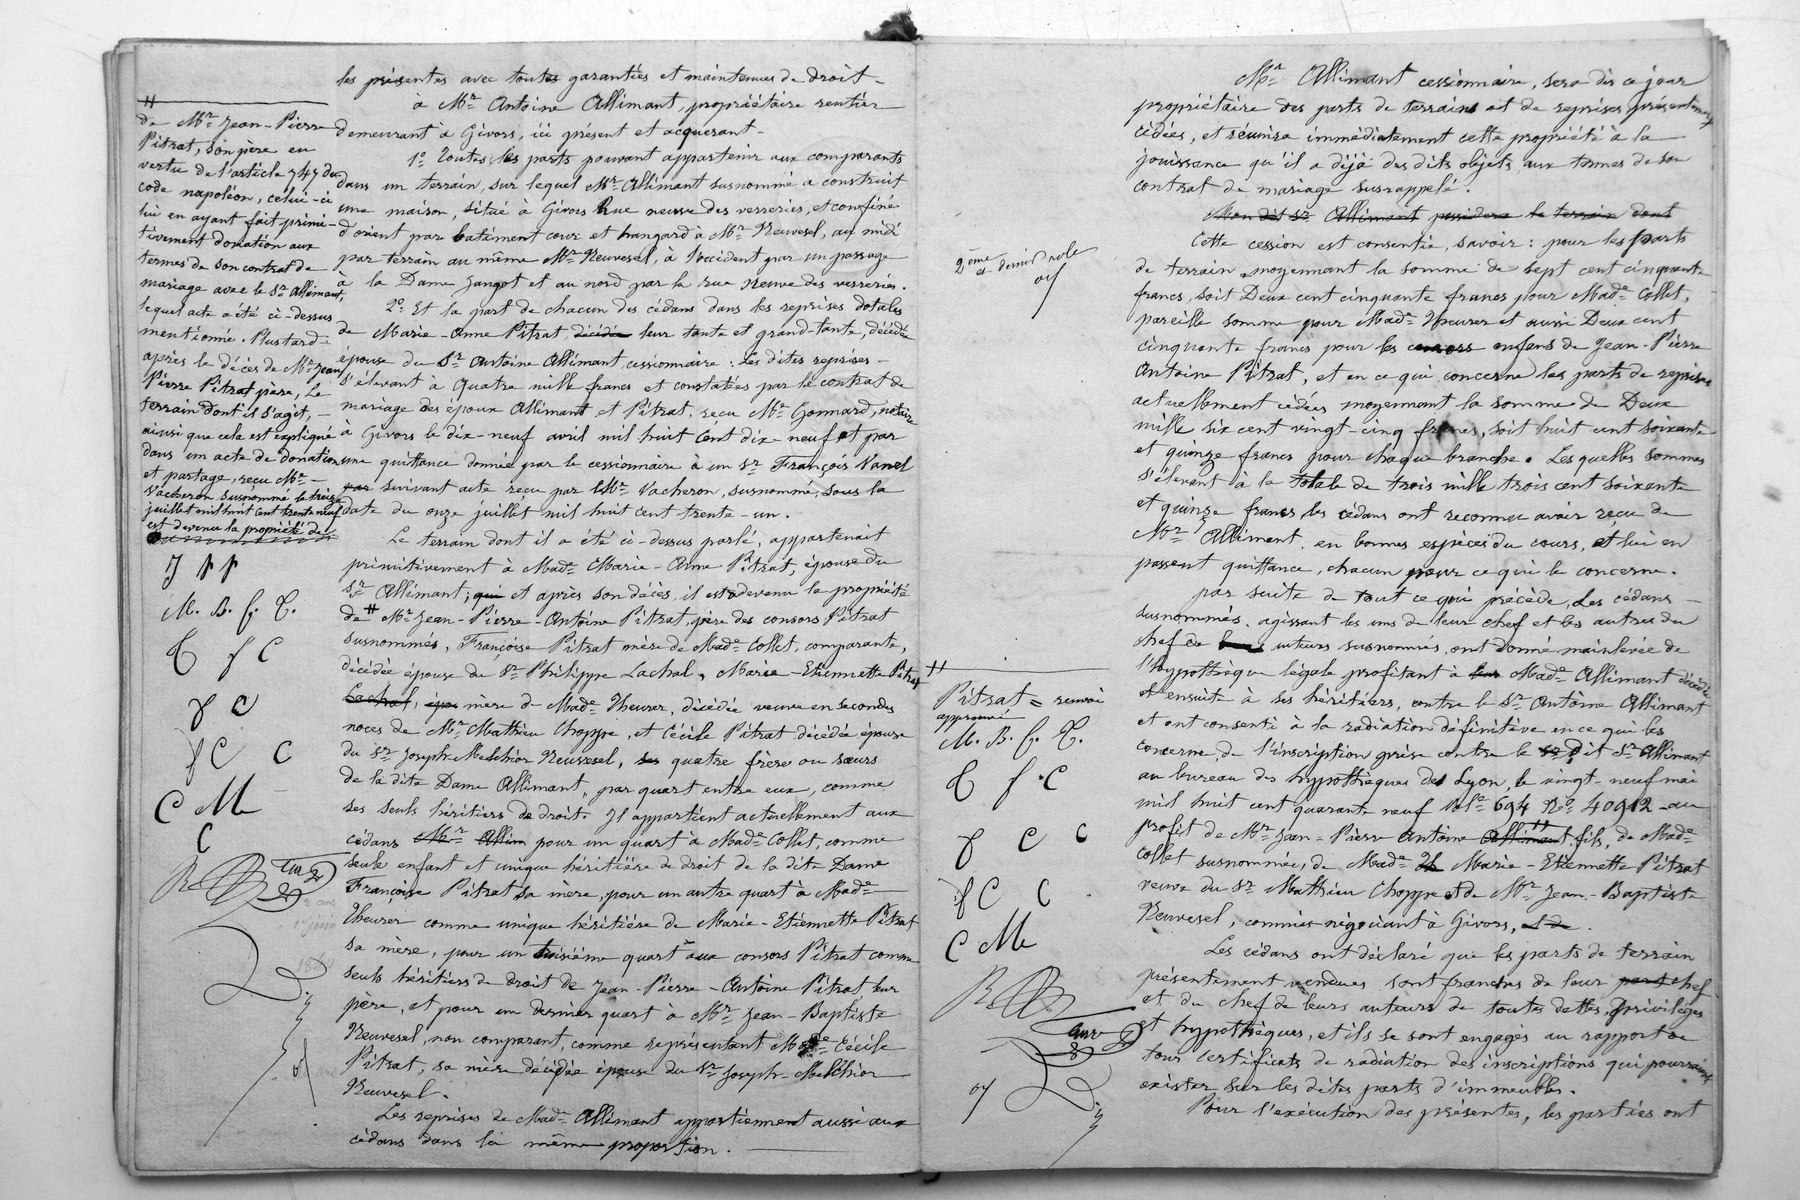 les présentes avec toutes garanties et maintenues de droit -
à Mr. Antoine Allimant, propriétaire rentier
demeurant à Givors, ici présent et acquerant -
1o. Toutes les parts pouvant appartenir aux comparants
dans un terrain, sur lequel Mr. Allimant susnommé a construit
une maison, situé à Givors Rue neuve des verreries, et confiné
d'orient par batiment cour et hangard à Mr. Neuvesel, au midi
par terrain au même Mr. Neuvesel, à l'occident par un passage
à la Dame Jangot et au nord par la rue Neuve des verreries.
2o. Et la part de chacun des cédans dans les reprises dotales
de Marie-Anne Pitrat, décédée leur tante et grand-tante, décédée
épouse du Sr. Antoine Allimant cessionnaire : les dites reprises -
s'élevant à quatre mille francs et constatées par le contrat de
mariage des époux Allimant et Pitrat, reçu Mr. Gonnard, notaire
à Givors le dix-neuf avril mil huit cent dix-neuf et par
une quittance donnée par le cessionnaire à un Sr. François Vanel
par suivant acte reçu par Mr. Vacheron, susnommé, sous la
date du onze juillet mil huit cent trente-un.
Le terrain dont il a été ci-dessus parlé, appartenait
primitivement à Made. Marie-Anne Pitrat, épouse du
Sr. Allimant; qui et après son décès, il est devenu la propriété
de # Mr. Jean-Pierre-Antoine Pitrat, père des consors Pitrat
susnommés, Françoise Pitrat mère de Made. Collet, comparante,
décédée épouse de Sr. Philippe Lachal, Marie-Etiennette Pitrat
Lachal, épou mère de Made. Theurer, décédée veuve en secondes
noces de Mr. Mathieu Choppe, et Cécile Pitrat décédée épouse
du Sr. Joseph Melchior Neuvesel, ses quatre frère ou sœurs
de la dite Dame Allimant, par quart entre eux, comme
ses seuls héritiers de droit. Il appartient actuellement aux
cédans Mr. Allim pour un quart à Made. Collet, comme
seule enfant et unique héritière de droit de la dite Dame
Françoise Pitrat sa mère, pour un autre quart à Made.
Theurer comme unique héritière de Marie-Etiennette Pitrat
sa mère, pour un troisième quart aux consors Pitrat comme
seuls héritiers de droit de Jean-Pierre-Antoine Pitrat leur
père, et pour un dernier quart à Mr. Jean-Baptiste
Neuvesel, non comparant, comme représentant Made. Cécile
Pitrat, sa mère décédée épouse du Sr. Joseph-Melchior
Neuvesel.
Les reprises de Made. Allimant appartiennent aussi aux
cédans dans la même proportion.
#
de Mr. Jean-Pierre
Pitrat, son père en
vertu de l'article 747 du
code napoléon, celui-ci
lui en ayant fait primi-
tivement donation aux
termes de son contrat de
mariage avec le Sr. Allimant,
lequel acte a été ci-dessus
mentionné. Plus tard -
après le décès de Mr. Jean
Pierre Pitrat père, le
terrain dont il s'agit, -
ainsi que cela est expliqué
dans un acte de donation
et partage, reçu Mr. -
Vacheron susnommé le treize
juillet mil huit cent trente neuf
est devenu la propriété de
J p p
M. B. f. C.
C f C
f C
f C C
C M
C
Mr. Allimant cessionnaire, sera dès ce jour
propriétaire des parts de terrains et de reprises présentement
cédées, et réunira immédiatement cette propriété à la
jouissance qu'il a déjà des dits objets aux termes de son
contrat de mariage susrappelé.
Mon dit Sr. Allimant possédera le terrain dont
Cette cession est consentie, savoir : pour les parts
de terrain moyennant la somme de sept cent cinquante
francs, soit Deux cent cinquante francs pour Made. Collet,
pareille somme pour Made. Theurer et aussi Deux cent
cinquante francs pour les enfans de Jean-Pierre
Antoine Pitrat, et en ce qui concerne les parts de reprises
actuellement cédées moyennant la somme de Deux
mille six cent vingt-cinq francs, soit huit cent soixante
et quinze francs pour chaque branche. Lesquelles sommes
s'élevant à la totale de trois mille trois cent soixante
et quinze francs les cédans ont reconnu avoir reçu de
Mr. Allimant, en bonnes espèces du cours, et lui en
passent quittance, chacun pour ce qui le concerne.
par suite de tout ce qui précède, les cédans -
susnommés, agissant les uns de leur chef et les autres du
chef de auteurs susnommés, ont donné mainlevée de
l'hypothèque légale profitant à leur Made. Allimant décédée
et ensuite à ses héritiers, contre le Sr. Antoine Allimant
et ont consenti à la radiation définitive en ce qui les
concerne, de l'inscription prise contre le dit Sr. Allimant
au bureau des hypothèques de Lyon, le vingt-neuf mai
mil huit cent quarante neuf Vole. 694 No. 40912 au
profit de Mr. Jean-Pierre Antoine Allimant # fils, de Made.
Collet susnommée, de Made. Marie-Etiennette Pitrat
veuve du Sr. Mathieu Choppe et de Mr. Jean-Baptiste
Neuvesel, commis négociant à Givors,
Les cédans ont déclaré que les parts de terrain
présentement vendues sont franches de leur part chef
et du chef de leurs auteurs de toutes dettes, privilèges
et hypothèques, et ils se sont engagés au rapport de
tous certificats de radiation des inscriptions qui pourraient
exister sur les dites parts d'immeubles.
Pour l'exécution des présentes, les parties ont
2ème et dernier role
#
Pitrat = renvoi
approuvé
M. B. f. C.
C f. C
f C C
f C C
C M